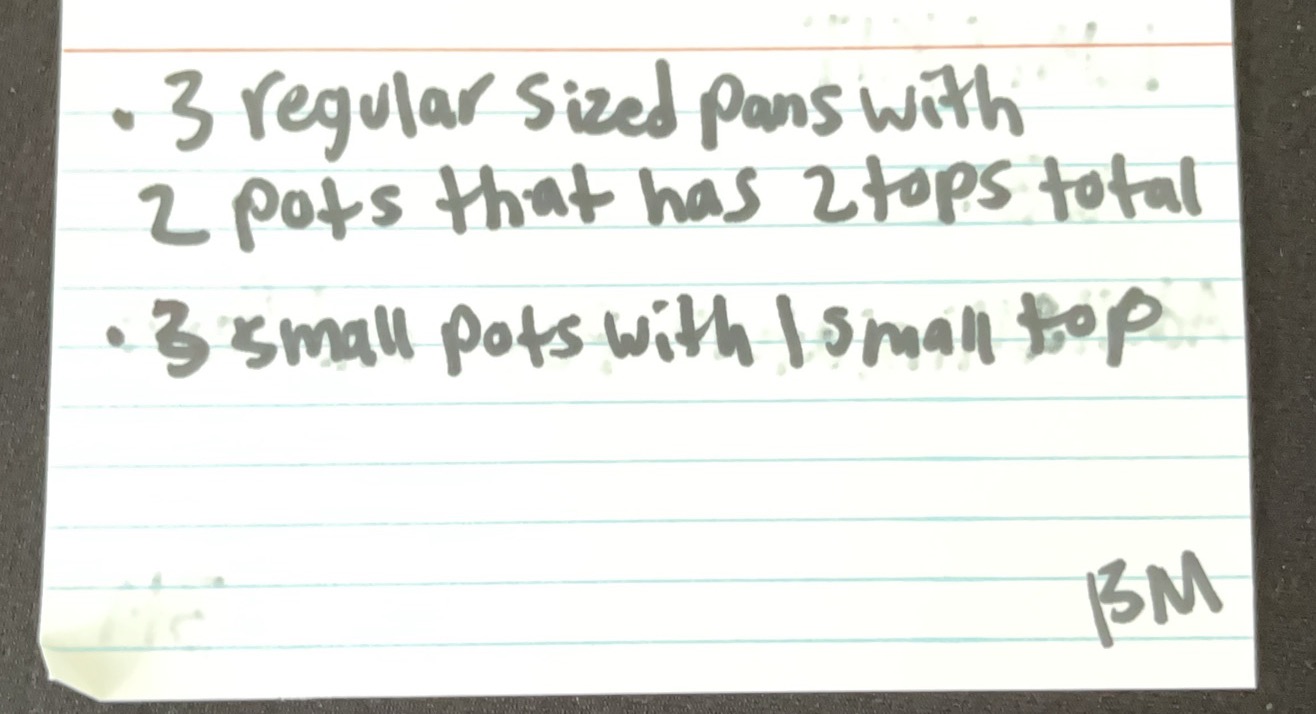 • 3 regular sized pans with
2 pots that has 2 tops total
• 3 small pots with 1 small top
BM